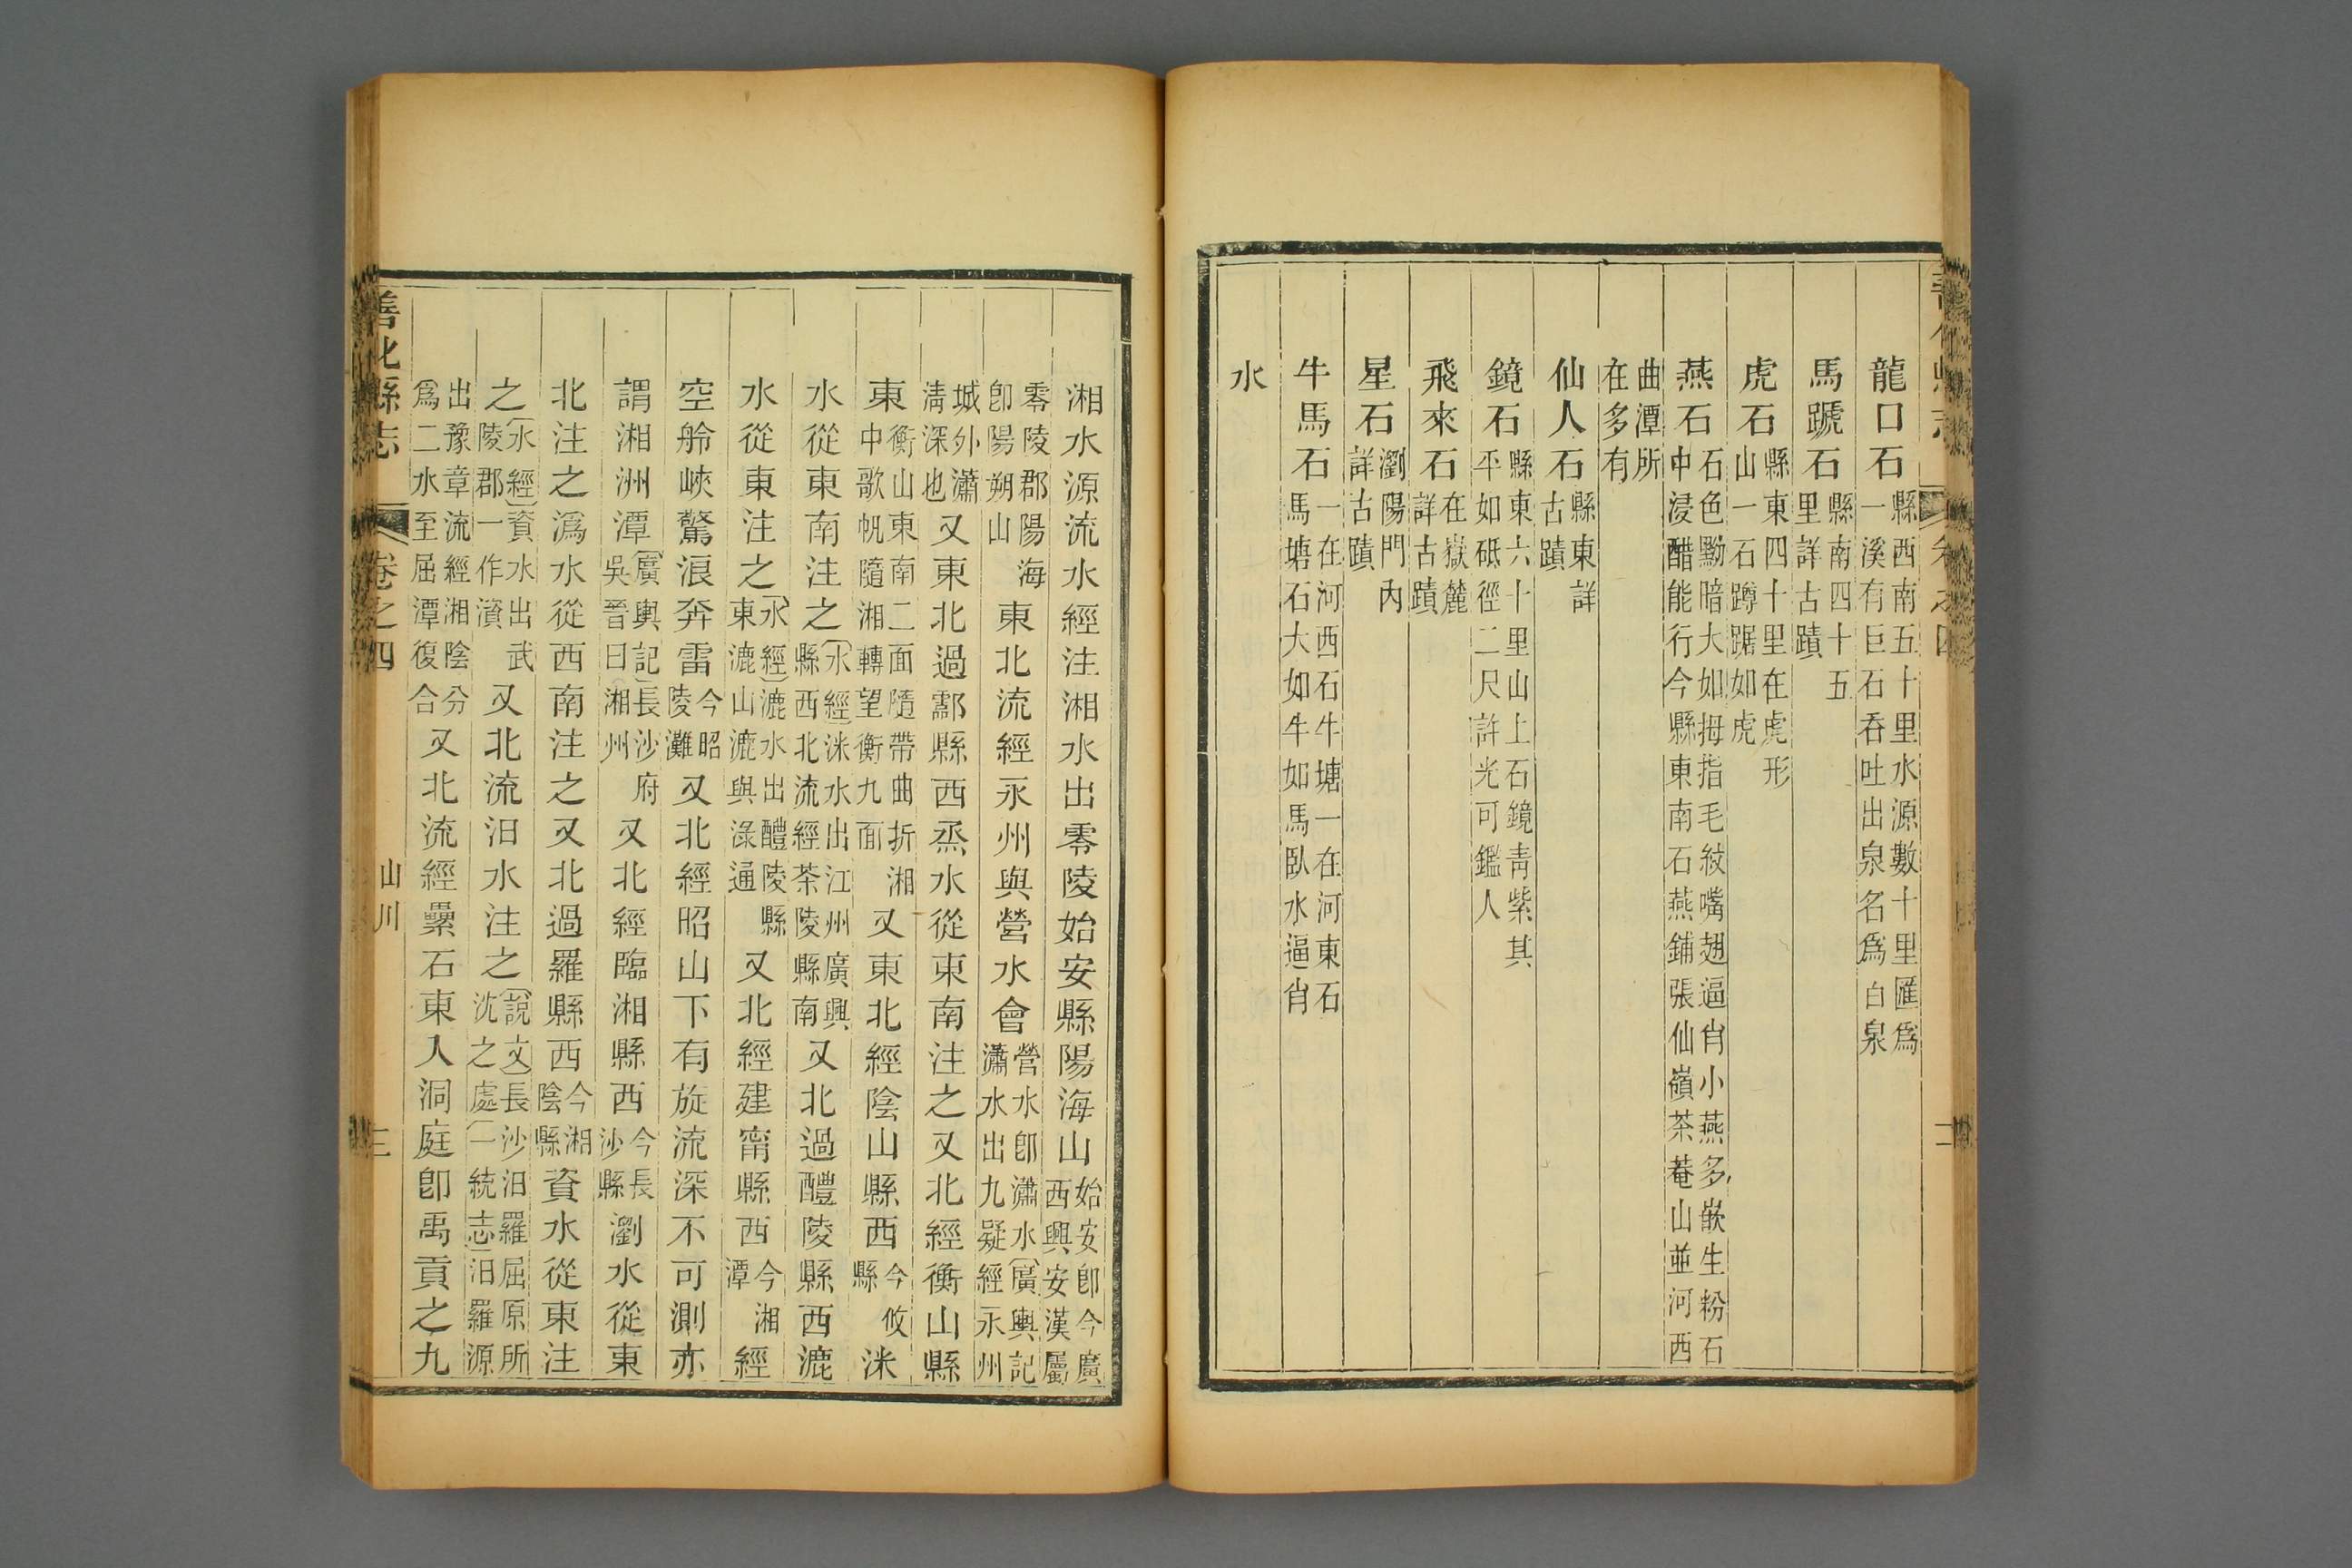 龍口石縣西南五十里水源數十里匯爲一溪有巨石吞吐出泉名爲白泉
馬蹏石縣南四十五里詳古蹟
虎石縣東四十里在虎形山一石蹲踞如虎
燕石石色黝暗大如拇指毛紋嘴翅逼肖小燕多嵌生粉石中浸醋能行今縣東南石燕鋪張仙嶺茶菴山並河西
曲潭所在多有
仙人石縣東詳古蹟
鏡石縣東六十里山上石鏡靑紫其平如砥徑二尺許光可鑑人
飛來石在嶽麓詳古蹟
星石瀏陽門內詳古蹟
牛馬石一在河西石牛塘一在河東石馬塘石大如牛如馬臥水逼肖
水
湘水源流水經注湘水出零陵始安縣陽海山始安卽今廣西興安漢屬
零陵郡陽海卽陽朔山東北流經永州與營水會營水卽瀟水廣輿記瀟水出九疑經永州
城外瀟淸深也又東北過酃縣西烝水從東南注之又北經衡山縣
東衡山東南二面隨帶曲折湘中歌帆隨湘轉望衡九面又東北經陰山縣西今攸縣洣
水從東南注之水經洣水出江州廣興縣西北流經茶陵縣南又北過醴陵縣西漉
水從東注之水經漉水出醴陵縣東漉山漉與淥通又北經建甯縣西今湘潭經
空舲峽驚浪奔雷今昭陵灘又北經昭山下有旋流深不可測亦
謂湘洲潭廣輿記長沙府吳晉曰湘州又北經臨湘縣西今長沙縣瀏水從東
北注之潙水從西南注之又北過羅縣西今湘陰縣資水從東注
之水經資水出武陵郡一作濱又北流汨水注之說文長沙汨羅屈原所沈之處一統志汨羅源
出豫章流經湘陰分爲二水至屈潭復合又北流經纍石東入洞庭卽禹貢之九
善化縣志
卷之四
山川
三